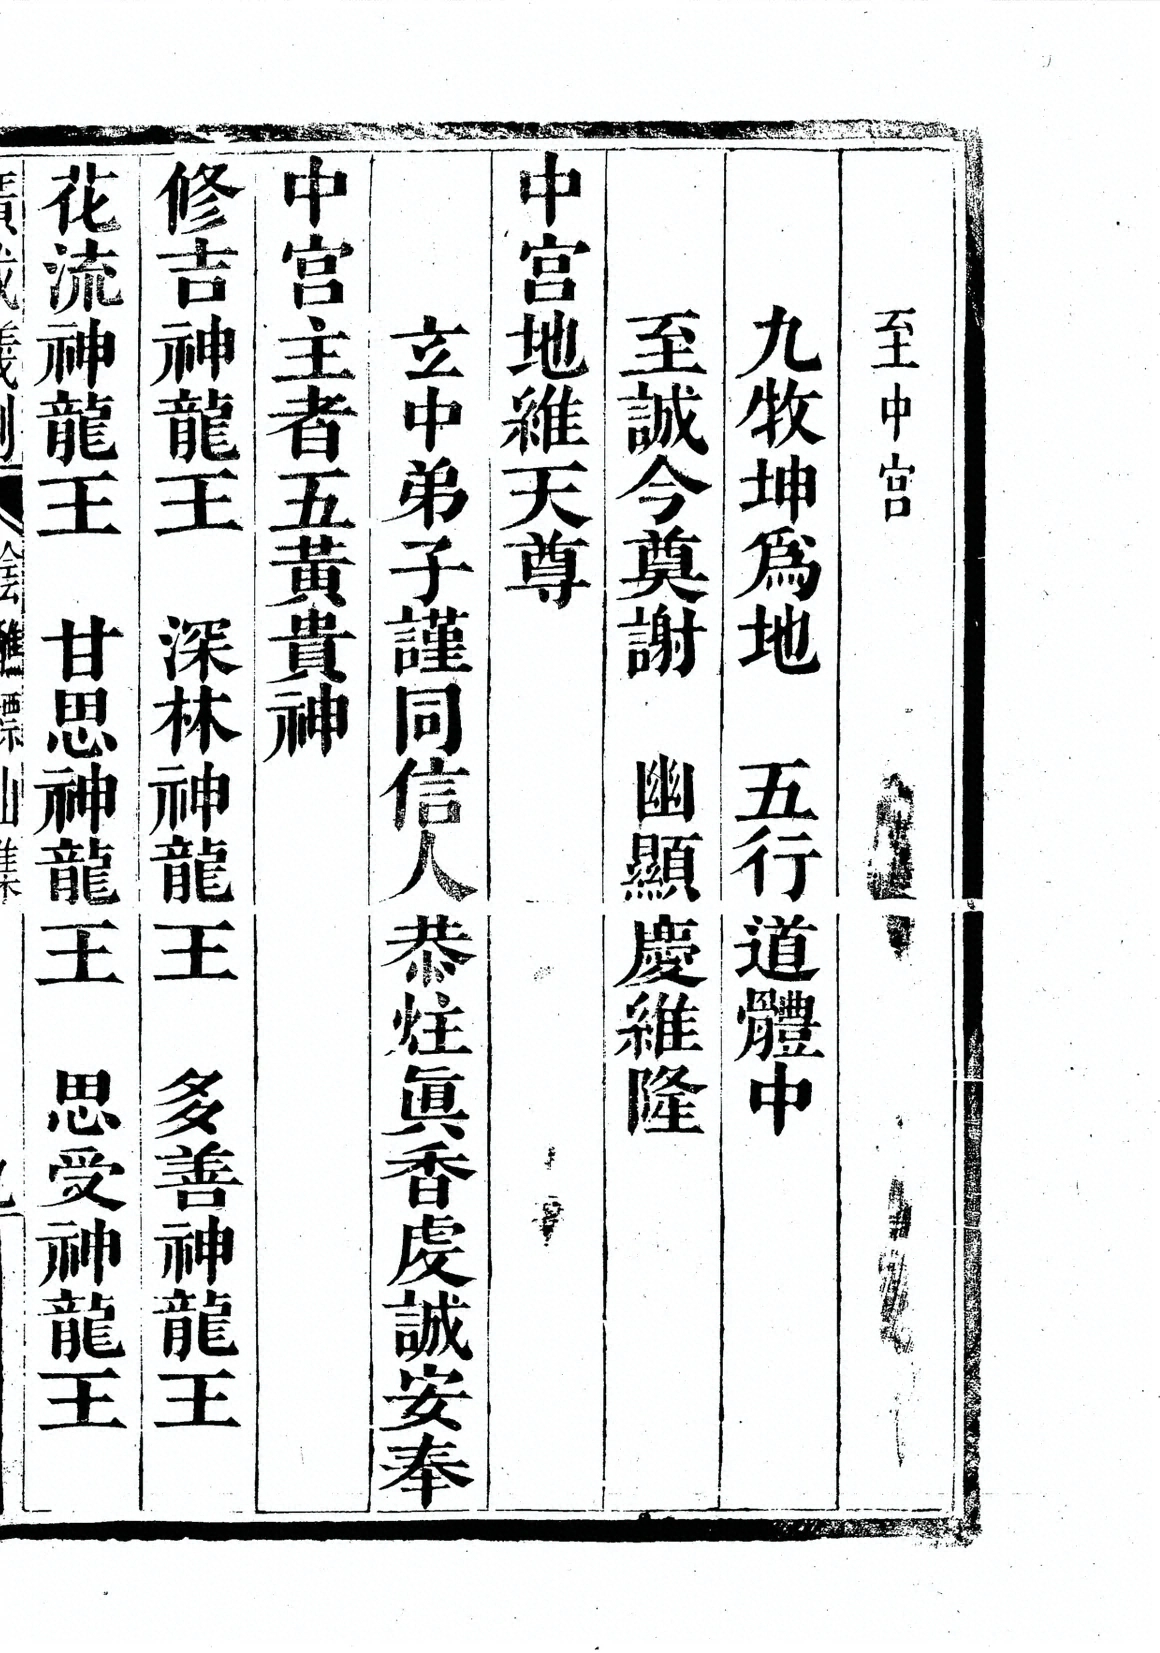 至中宮
九牧坤爲地　五行道體中
至誠今奠謝　幽顯慶維隆
中宮地維天尊
立中弟子謹同信人恭炷眞香虔誠安奉
中宮主者五黃貴神
修吉神龍王　深林神龍王　多善神龍王
花流神龍王　甘思神龍王　思受神龍王